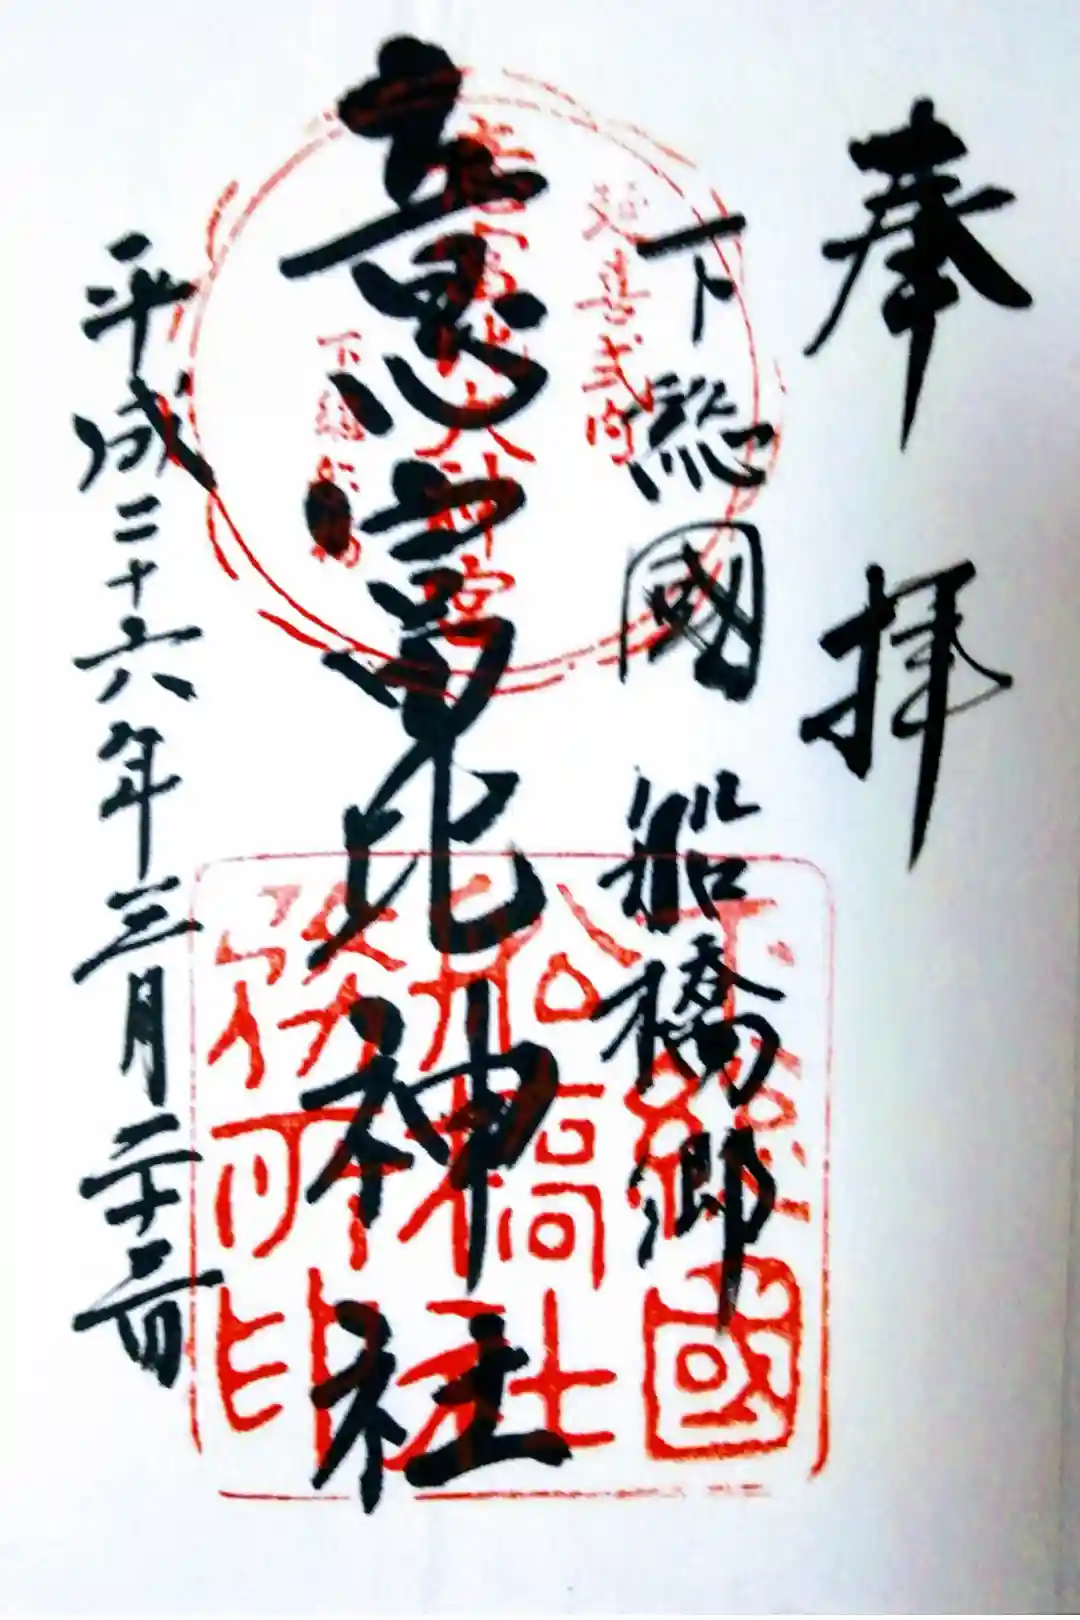 奉拝
下総國船橋郷
意富比神社
平成二十六年三月二十三日
延喜式内
意富比大神宮
下総船橋
下総國
船橋社
務所印